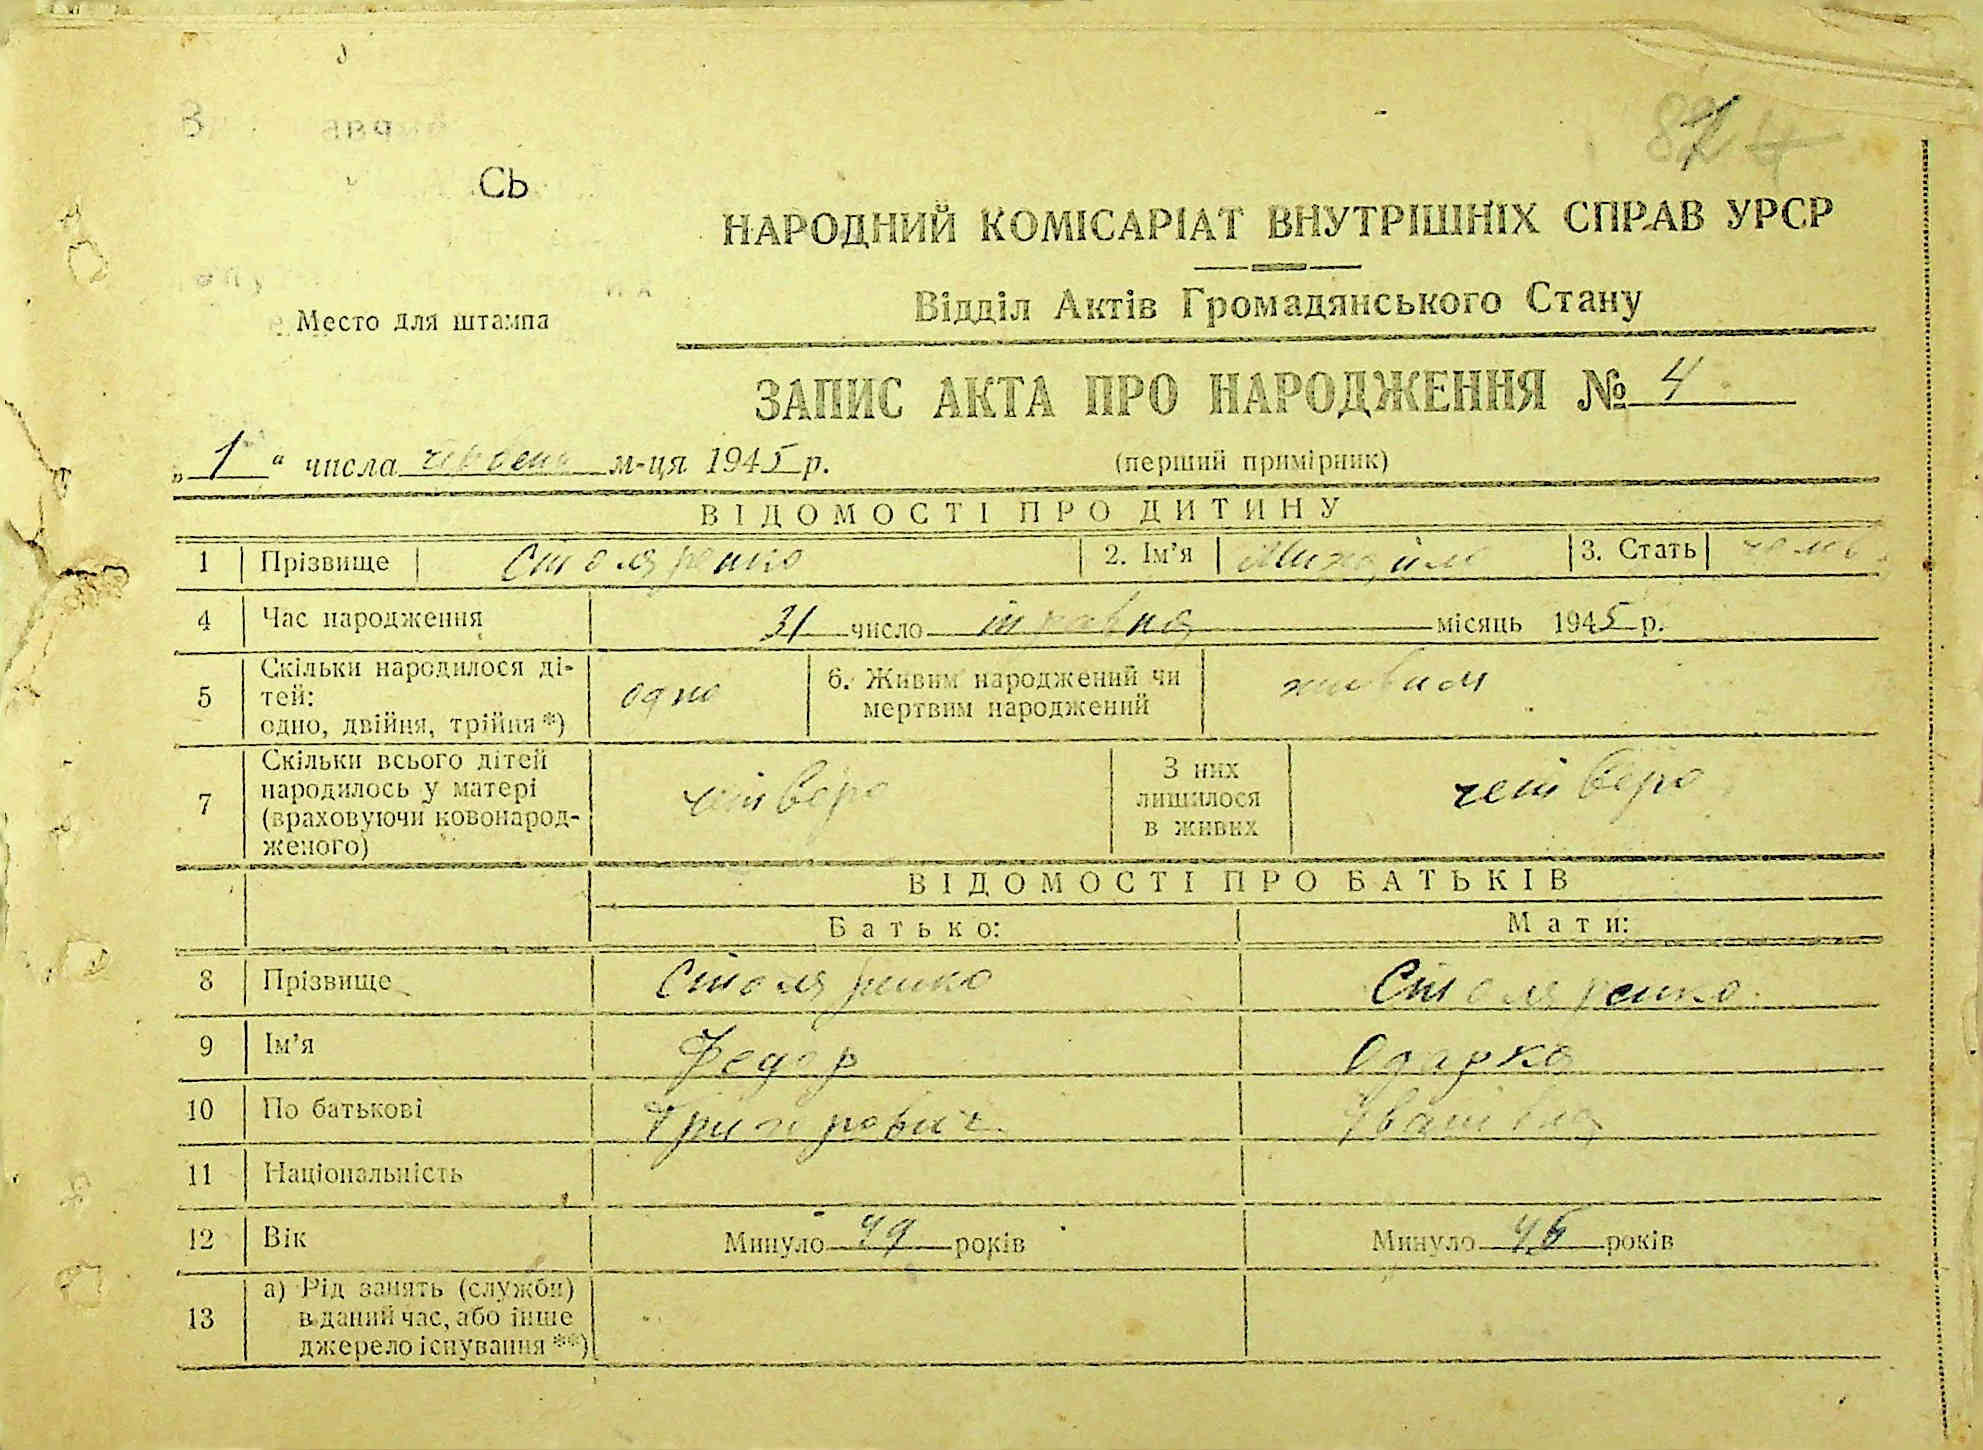 СЬ
НАРОДНИЙ КОМІСАРІАТ ВНУТРІШНІХ СПРАВ УРСР
Место для штампа
Відділ Актів Громадянського Стану
ЗАПИС АКТА ПРО НАРОДЖЕННЯ № 4
„ 1 “ числа червень м-ця 1945 р.
(перший примірник)
ВІДОМОСТІ ПРО ДИТИНУ
1 Прізвище Столяренко 2. Ім’я Михайло 3. Стать
4 Час народження 31 число травня місяць 1945 р.
5 Скільки народилося ді-
тей:
одно, двійня, трійня *) одно
6. Живим народжений чи
мертвим народжений живим
7 Скільки всього дітей
народилось у матері
(враховуючи новонарод-
женого) четверо
З них
лишилося
в живих четверо
ВІДОМОСТІ ПРО БАТЬКІВ
Батько: Мати:
8 Прізвище Столяренко Столяренко
9 Ім’я Федор Одарка
10 По батькові Григорович Іванівна
11 Національність
12 Вік Минуло 49 років Минуло 45 років
13 а) Рід занять (служби)
в даний час, або інше
джерело існування **)